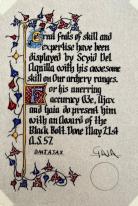 Great feats of skill and
expertise have been
displayed by Scyld Del
Aquilla with his awesome
skill on our archery ranges.
For his unerring
accuracy We, Iliax
and Gaia do present him
with an Award of the
Black Bolt. Done May 21st
A.S. 57.
GAIA